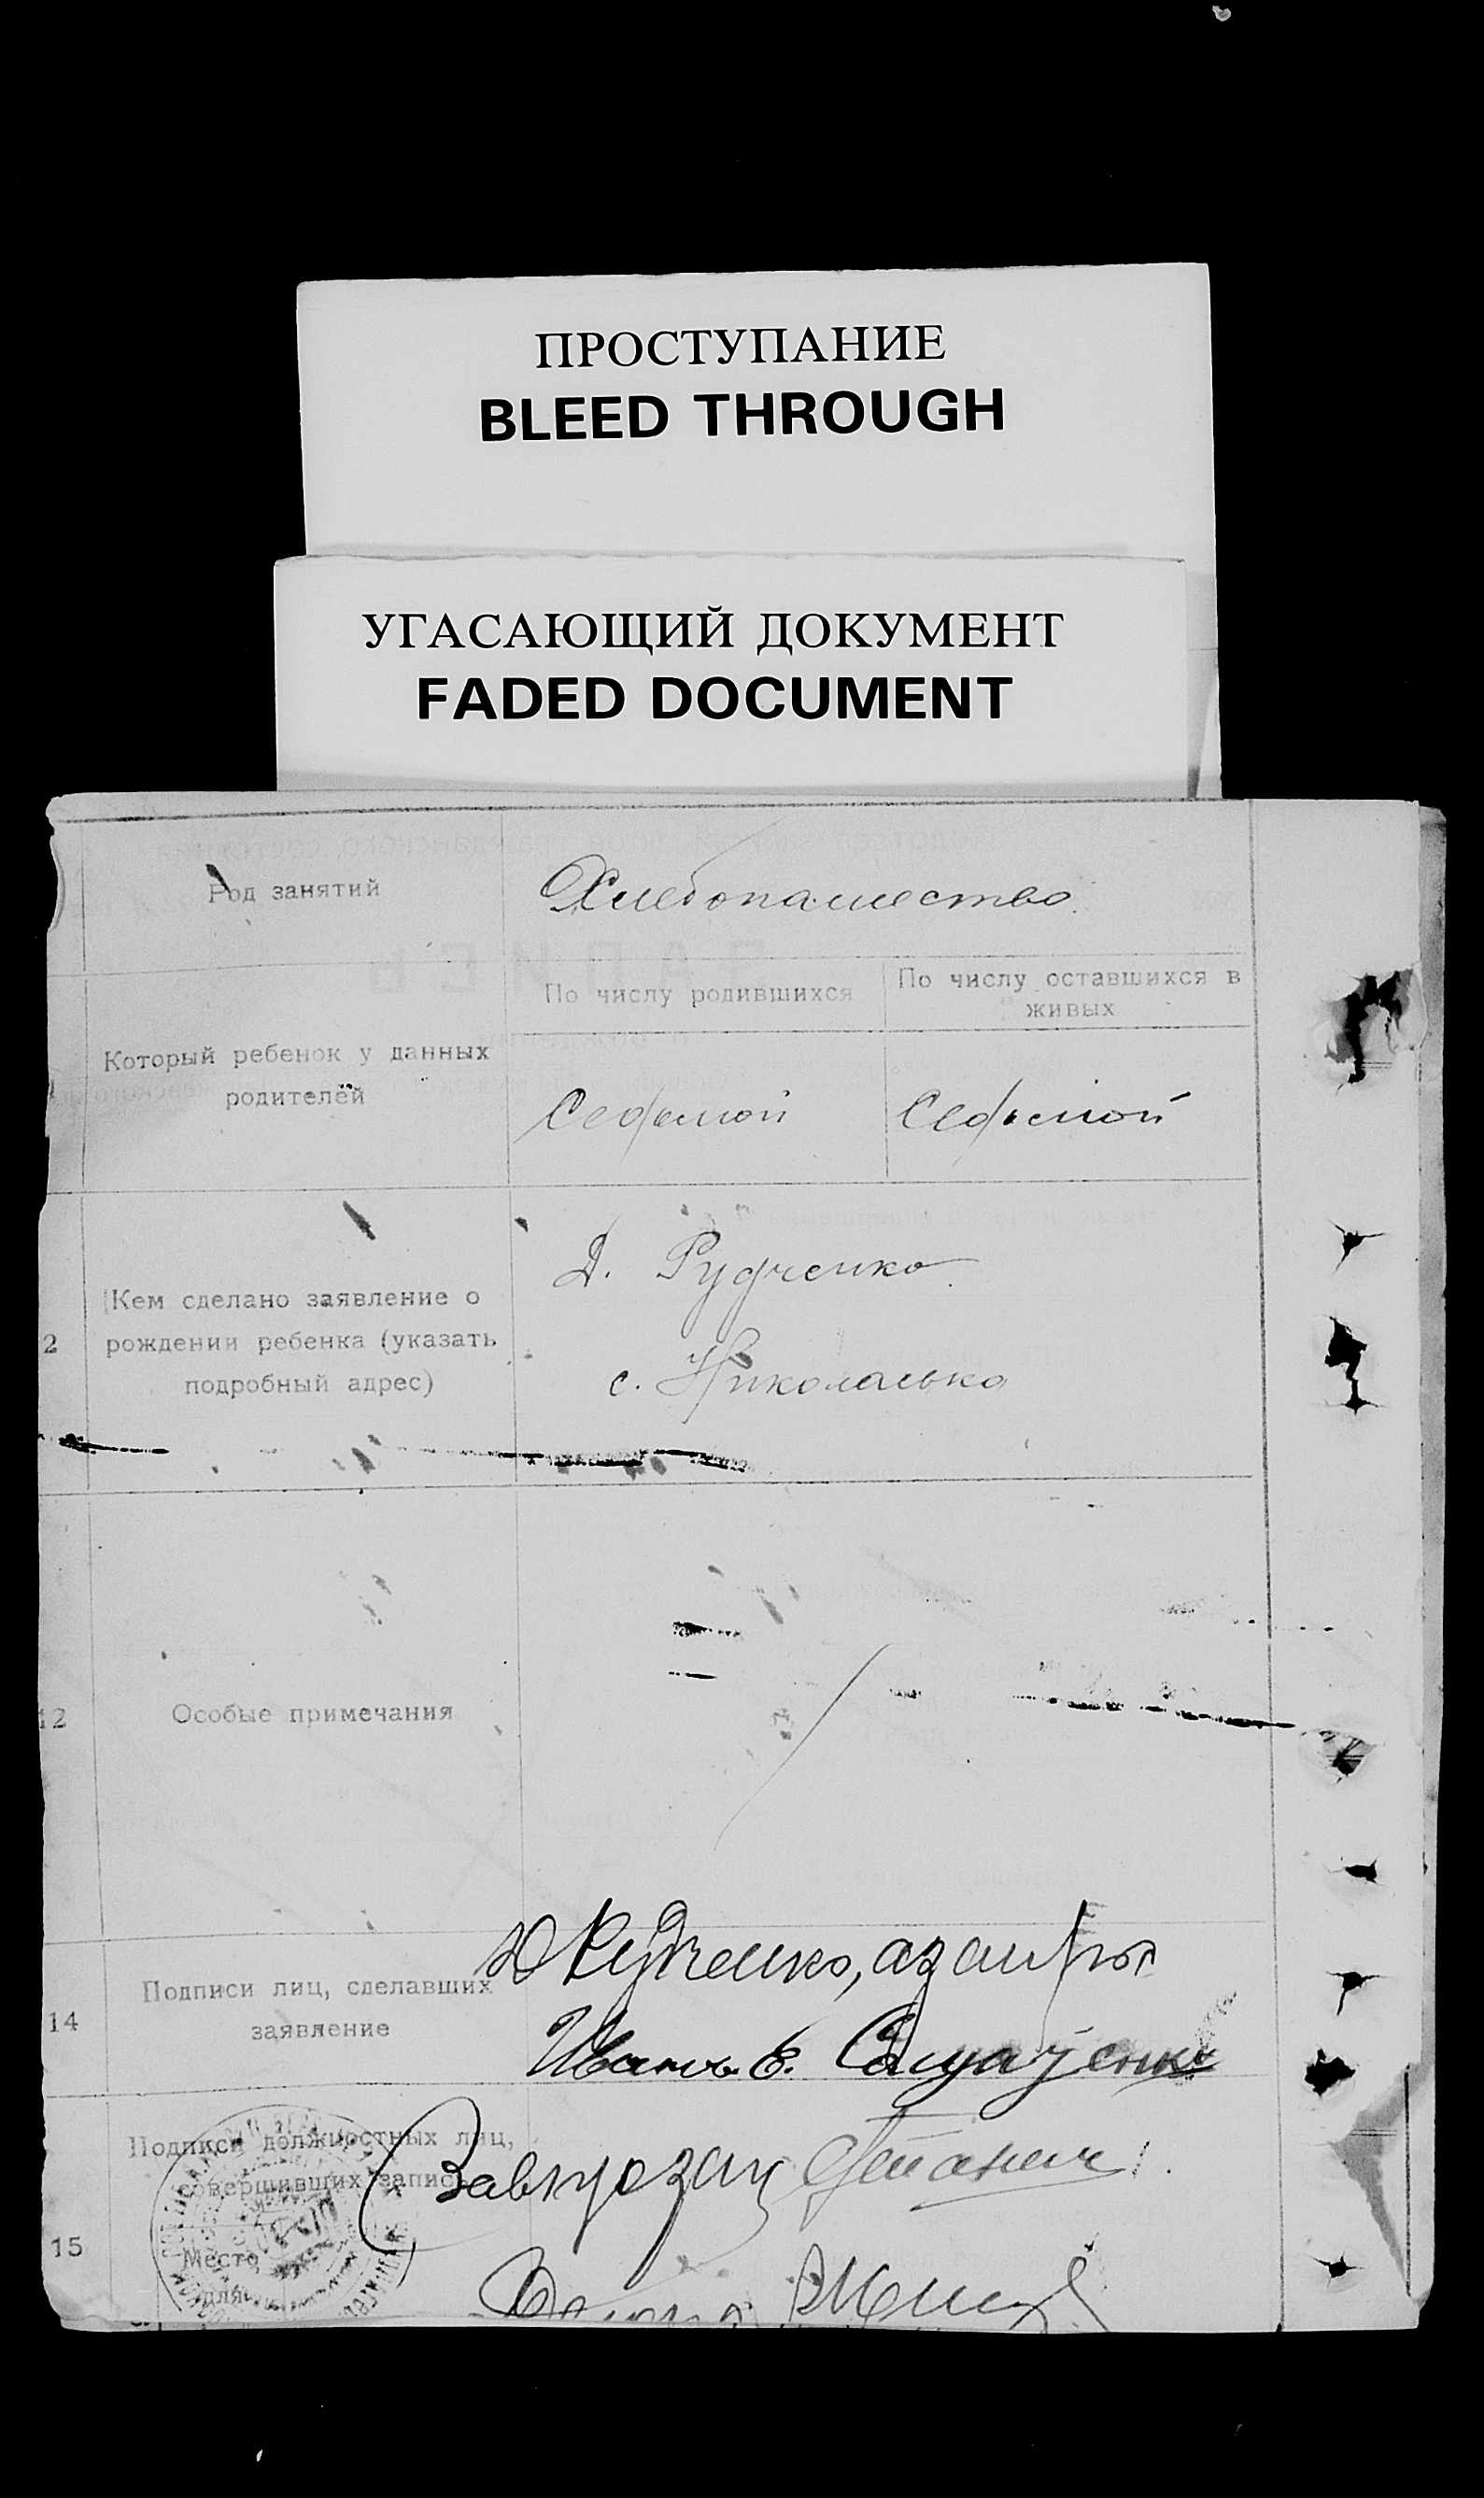 ПРОСТУПАНИЕ
BLEED THROUGH
УГАСАЮЩИЙ ДОКУМЕНТ
FADED DOCUMENT
Род занятий
Хлебопашество
Который ребенок у данных
родителей
По числу родившихся
По числу оставшихся в
живых
Седьмой
Седьмой
2
Кем сделано заявление о
рождении ребенка (указать
подробный адрес)
Д. Рудченко
с.
12
Особые примечания
14
Подписи лиц, сделавших
заявление
Рудченко,
Иванъ
15
Подписи должностных лиц,
совершивших запись
Место
для